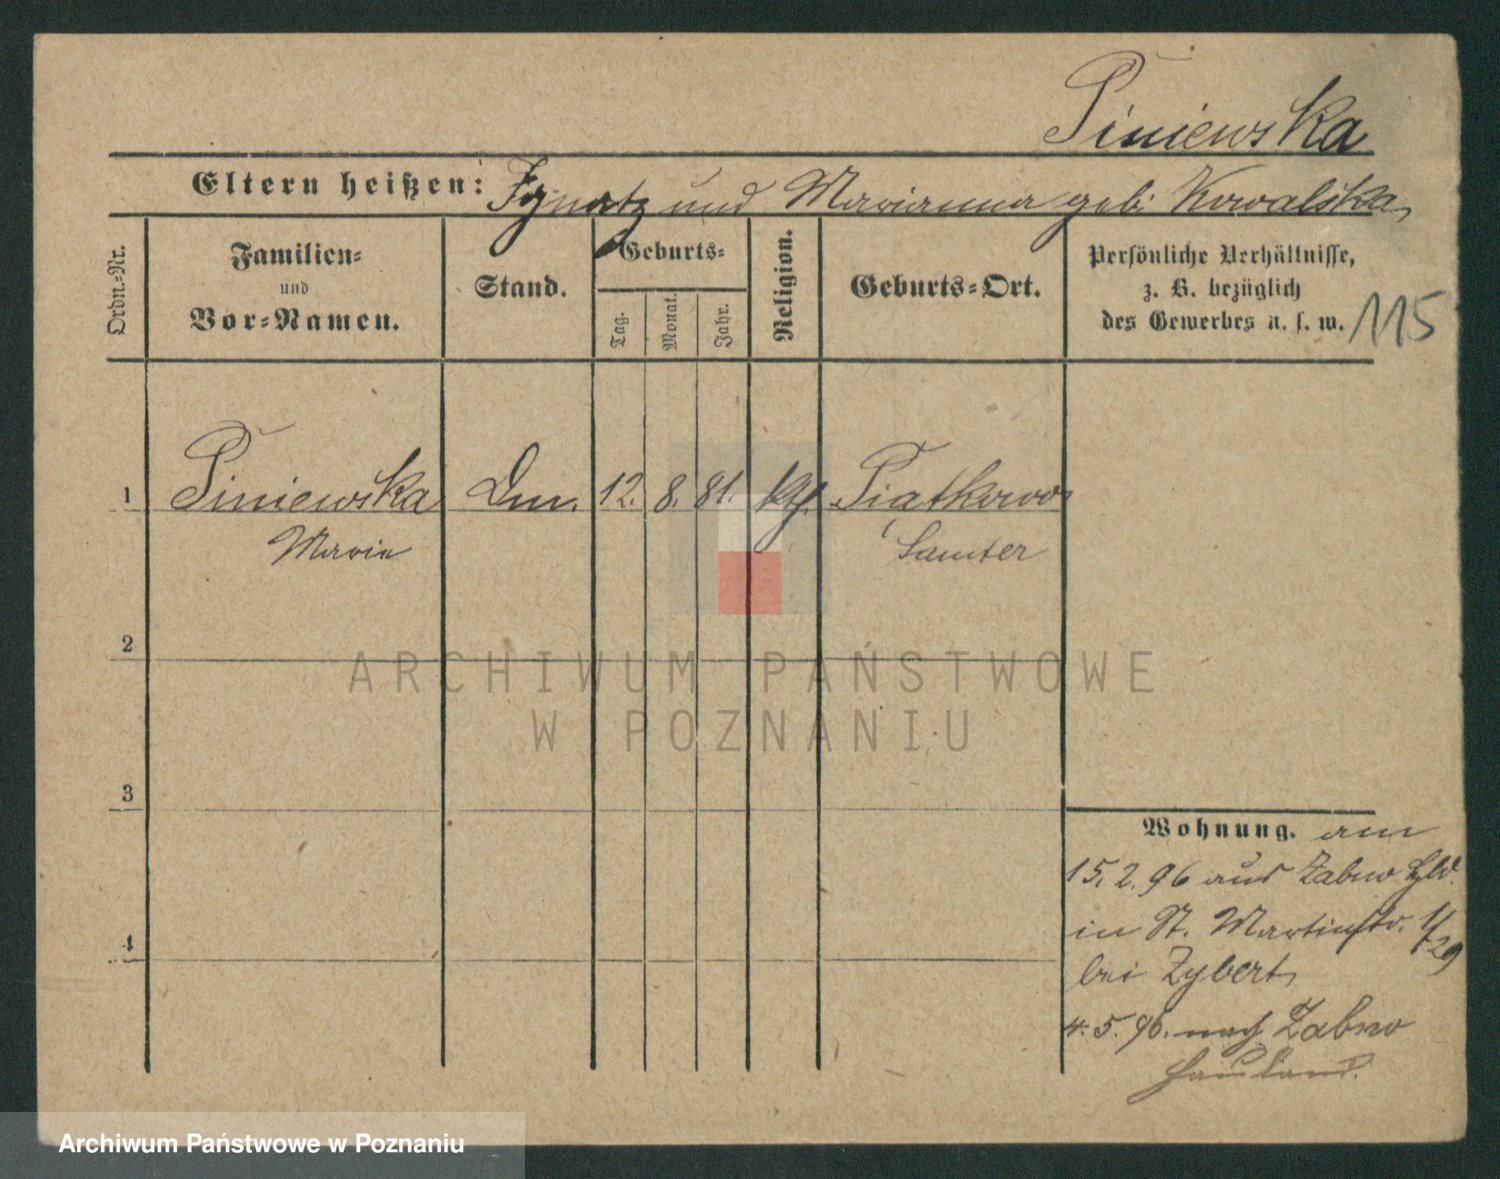 Piniewska
Eltern heißen: Ignatz und Marianna geb. Kowalska
Ordn.-Nr.
Familien-
und
Vor-Namen.
Stand.
Geburts-
Tag.
Monat.
Jahr.
Religion.
Geburts-Ort.
Persönliche Verhältnisse,
z. B. bezüglich
des Gewerbes u. s. w.
115
1 Piniewska Dm. 12. 8. 81. kth. Piatkowo
Marie Samter
2
3
4
Wohnung. am
15. 2. 96 aus Zabno
in St. Martinstr. 1/29
bei Zybert
4. 5. 96. nach Zabno
Hauland.
ARCHIWUM PAŃSTWOWE
W POZNANIU
Archiwum Państwowe w Poznaniu